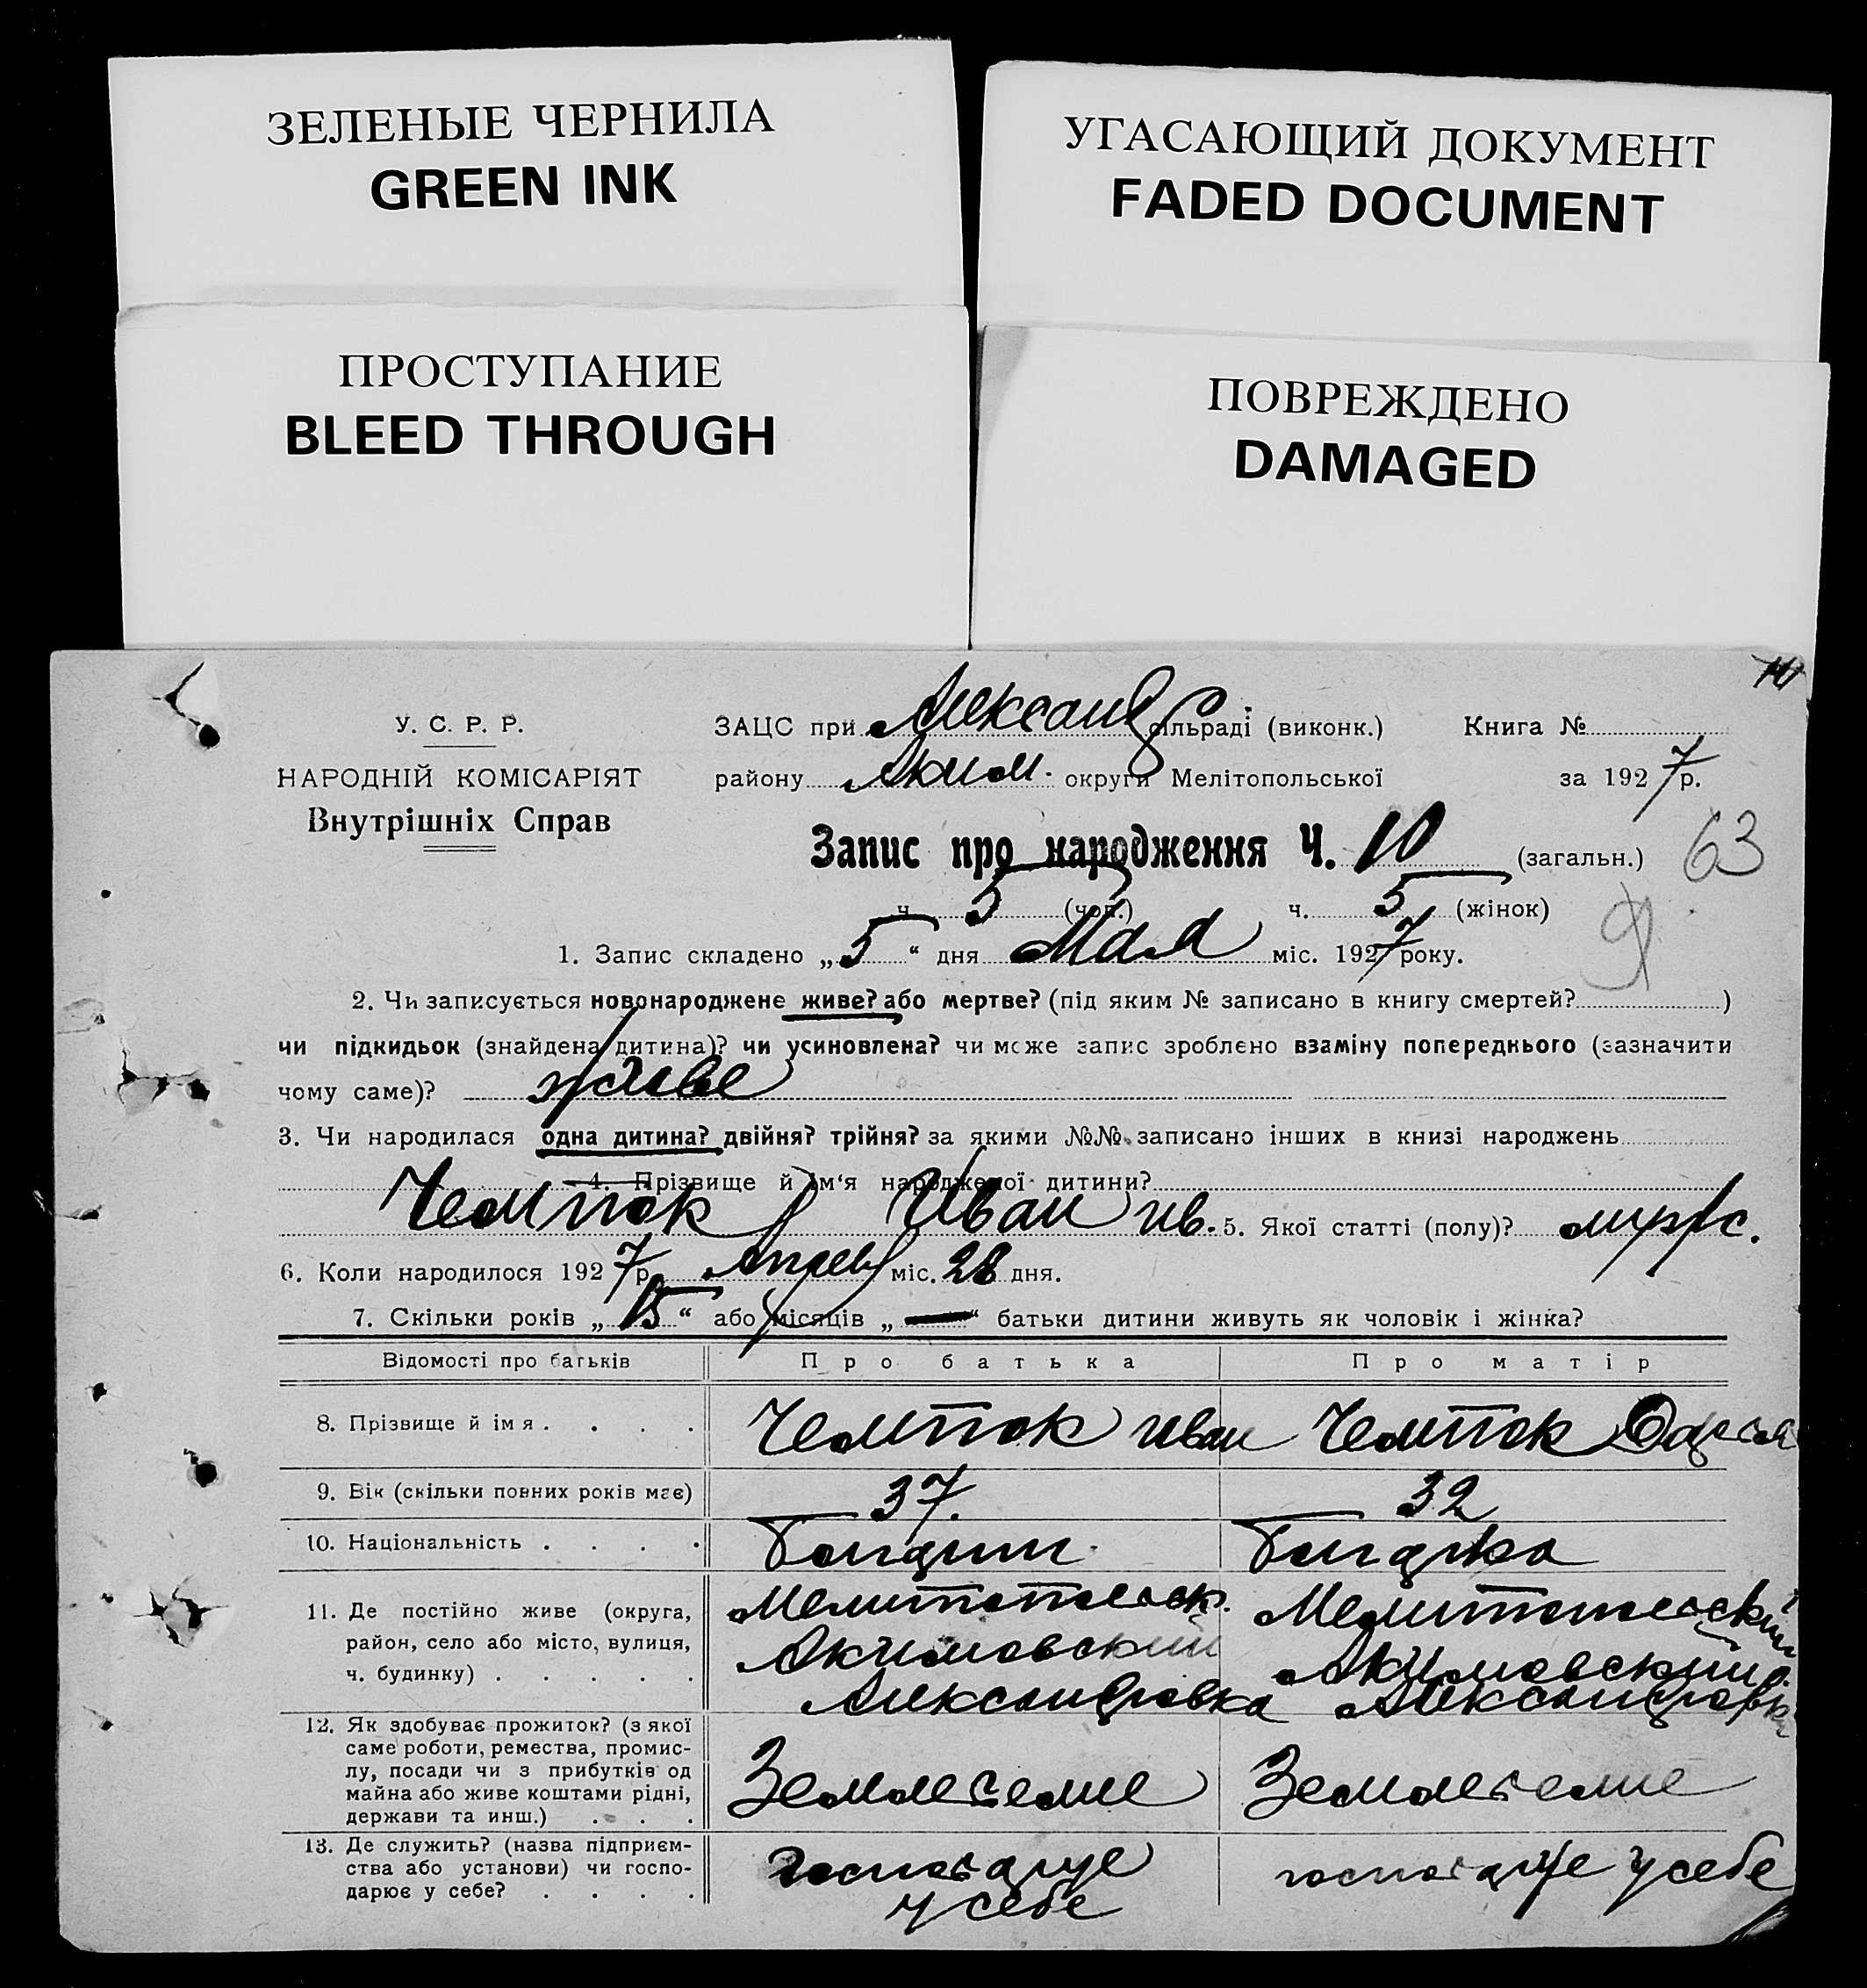 ЗЕЛЕНЫЕ ЧЕРНИЛА
GREEN INK
УГАСАЮЩИЙ ДОКУМЕНТ
FADED DOCUMENT
ПРОСТУПАНИЕ
BLEED THROUGH
ПОВРЕЖДЕНО
DAMAGED
У. С. Р. Р.
НАРОДНІЙ КОМІСАРІЯТ
Внутрішніх Справ
ЗАЦС при Александр сільраді (виконк.) Книга №
району Аким. округи Мелітопольської за 1927 р.
Запис про народження Ч. 10 (загальн.) 63
ч. 5 (чол.) ч. 5 (жінок)
1. Запис складено „5“ дня Мая міс. 1927 року.
2. Чи записується новонароджене живе? або мертве? (під яким № записано в книгу смертей? )
чи підкидьок (знайдена дитина)? чи усиновлена? чи може запис зроблено взаміну попереднього (зазначити
чому саме)? живе
3. Чи народилася одна дитина? двійня? трійня? за якими №№ записано інших в книзі народжень
4. Прізвище й ім‘я народженої дитини?
Иван ив. 5. Якої статті (полу)? мужс.
6. Коли народилося 1927 р. Апреля міс. 28 дня.
7. Скільки років „15“ або місяців „—“ батьки дитини живуть як чоловік і жінка?
Відомості про батьків
Про батька
Про матір
8. Прізвище й імя . . . .
Иван
9. Вік (скільки повних років має)
37.
32
10. Національність . . . .
11. Де постійно живе (округа,
район, село або місто, вулиця,
ч. будинку) . . . . .
Мелитопольск.
Акимовский
Александровка
Мелитопольский
Акимовский
Александровка
12. Як здобуває прожиток? (з якої
саме роботи, ремества, промис-
лу, посади чи з прибутків од
майна або живе коштами рідні,
держави та инш.) . . .
13. Де служить? (назва підприєм-
ства або установи) чи госпо-
дарює у себе? . . . .
господарує
у себе
господарує у себе